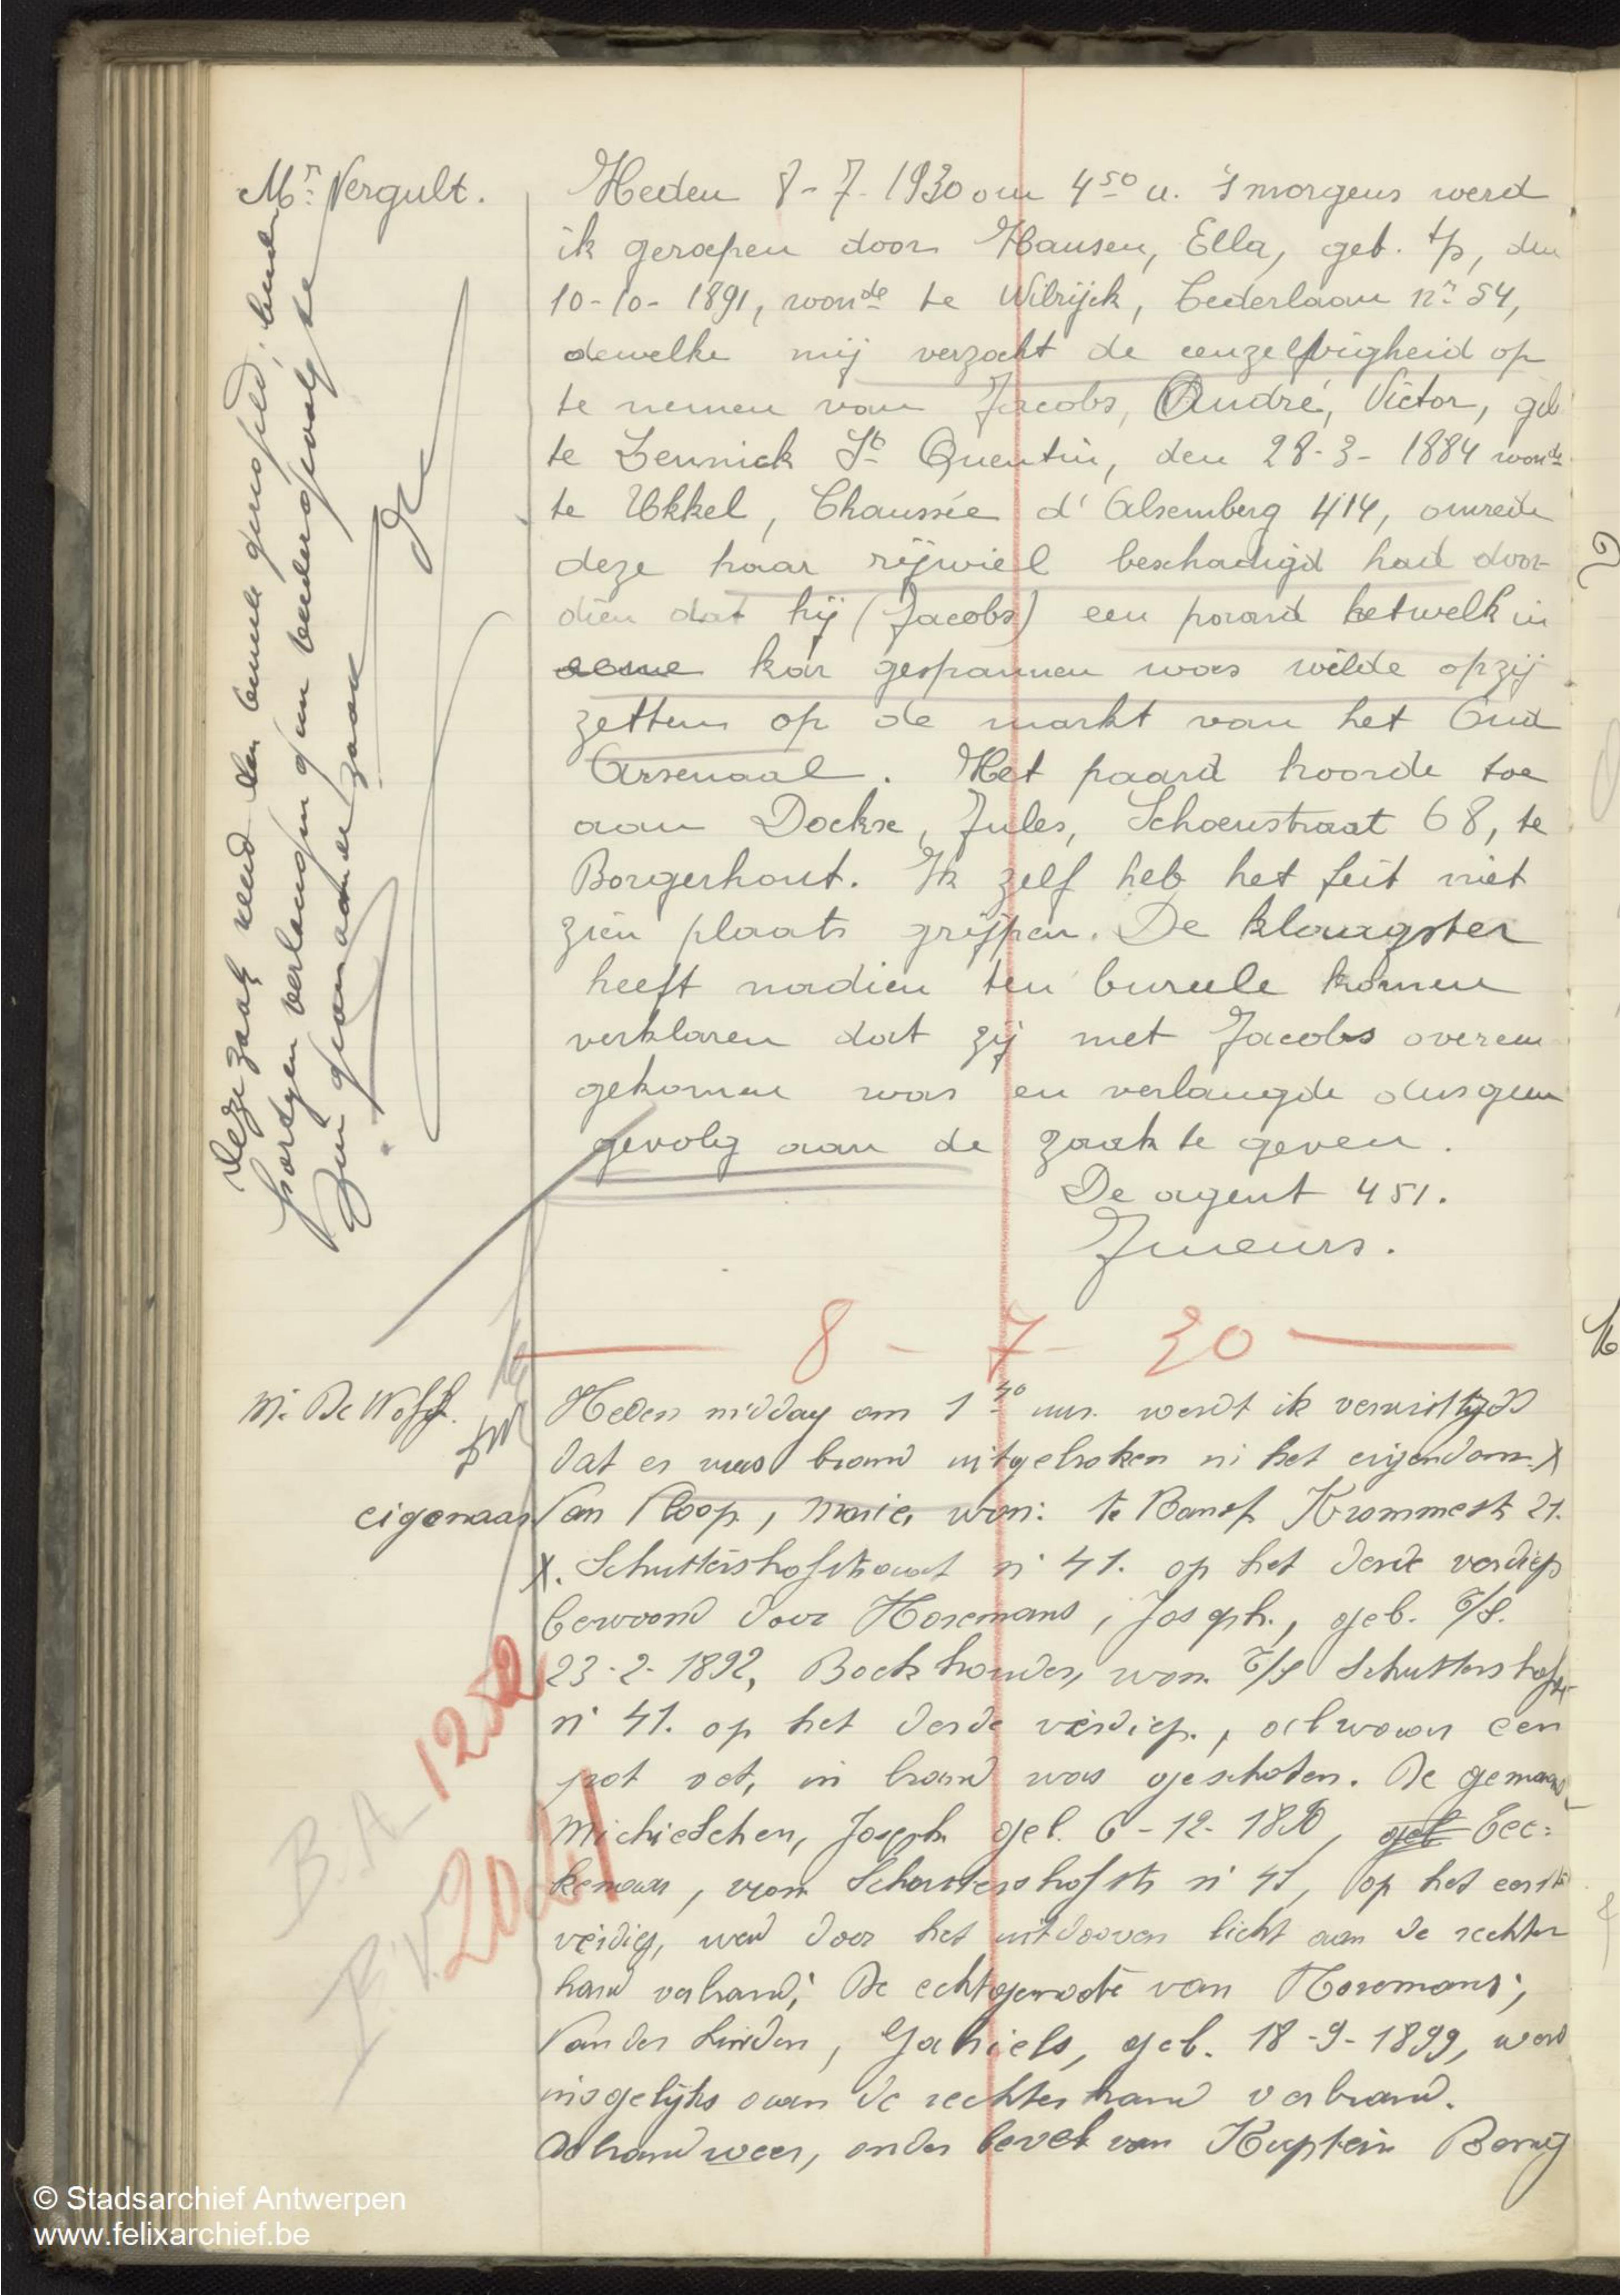 Mr Vergult.
Heden 8-7-1930 om 4 50 u. 's morgens werd
ik geroepen door Hansen, Ella, geb. t/s, den
10-10-1891, wonde te Wilrijck, Cederlaan nr 54,
dewelke mij verzocht de eenzelvigheid op
te nemen van Jacobs, André, Victor, geb
te Lennick St Quentin, den 28-3-1884 wonde
te Ukkel, Chaussée d'Alsemberg 414, omrede
deze haar rijwiel beschadigd had door-
dien dat hij (Jacobs) een paard hetwelk in
kar gespannen was wilde opzij
zetten op de markt van het Oud
Arsenaal. Het paard hoorde toe
aan Dockx, Jules, Schoenstraat 68, te
Borgerhout. Ik zelf heb het feit niet
zien plaats grijpen. De klaagster
heeft nadien ten bureele komen
verklaren dat zij met Jacobs overeen
gekomen was en verlangde dus geen
gevolg aan de zaak te geven.
De agent 451.
Deze zaak werd ten bureele
partijen verlangen geen
zaak
8 - 7 - 30
M. De Wolf.
Heden middag om 1 uur werdt ik verwittigd
dat er was brand uitgebroken in het eigendom X
eigenaar Van Loop, Marie, won: te
X. Schuttershofstraat n° 41. op het derde verdiep
bewoond door Horemans, Joseph., geb. T/S.
23-2-1892, Boekhouder, won. T/S Schuttershofstr
n° 41. op het derde verdiep., alwaar een
pot vet, in brand was geschoten. De genaamd
Joseph geb. 6-12-1890, geb Bee=
kenaar, won Schuttershofstr n° 41, op het eerste
verdiep, werd door het uitdooven licht aan de rechter
hand verbrand; De echtgenoote van Horemans;
Van der Linden, Gabriels, geb. 18-9-1899, werd
insgelijks aan de rechter hand verbrand.
brandweer, onder bevel van Kaptein
B.A. 1252
P.V. 2041
© Stadsarchief Antwerpen
www.felixarchief.be